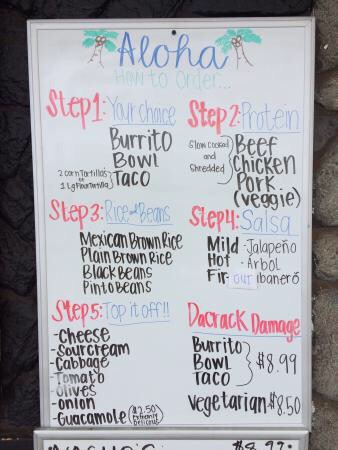 Aloha
How to Order...
Step 1: Your Choice
Burrito
Bowl
2 corn Tortillas or 1 Lg Flour Tortilla Taco
Step 2: Protein
Slow Cooked and Shredded
Beef
Chicken
Pork
(veggie)
Step 3: Rice and Beans
Mexican Brown Rice
Plain Brown Rice
Black Beans
Pinto Beans
Step 4: Salsa
Mild - Jalapeño
Hot - Arbol
Fir out abanero
Step 5: Top it off!!
-Cheese
-Sourcream
-Cabbage
-Tomato
-Olives
-Onion
-Guacamole $2.50 Extremely Delicious
Dacrack Damage
Burrito
Bowl
Taco
$8.99
Vegetarian $8.50
$8.99